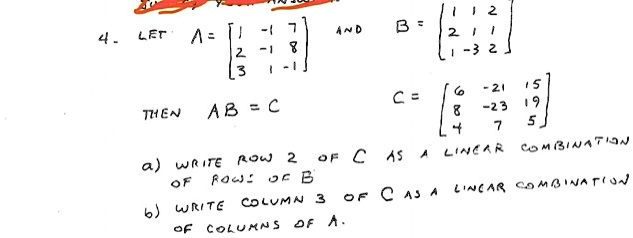 4. LET A = [1 -1 7 AND B = [1 1 2
2 -1 8 2 1 1
3 1 -1] 1 -3 2]
THEN AB = C C = [6 -21 15
8 -23 19
4 7 5]
a) WRITE ROW 2 OF C AS A LINEAR COMBINATION
OF ROWS OF B
b) WRITE COLUMN 3 OF C AS A LINEAR COMBINATION
OF COLUMNS OF A.